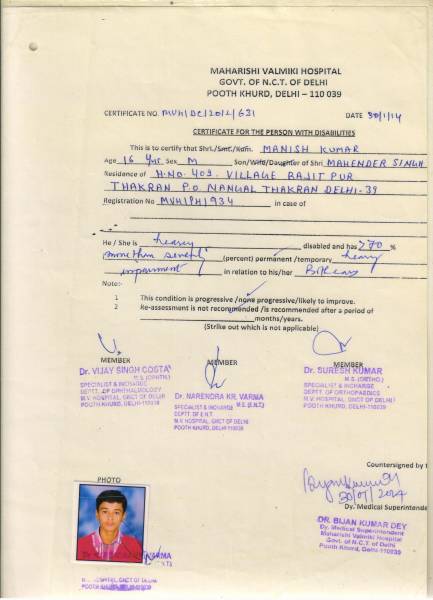 MAHARISHI VALMIKI HOSPITAL
GOVT. OF N.C.T. OF DELHI
POOTH KHURD, DELHI – 110 039
CERTIFICATE NO. MVH/DC/2012/631 DATE 30/1/14
CERTIFICATE FOR THE PERSON WITH DISABILITIES
This is to certify that Shri./Smt./Kum. MANISH KUMAR
Age 16 Yrs Sex M Son/Wife/Daughter of Shri MAHENDER SINGH
Residence of H.NO. 409. VILLAGE RAJIT PUR
THAKRAN P.O. NANGAL THAKRAN DELHI-39
Registration No MVH/PH/934 in case of
He / She is hearing disabled and has >70 %
more than seventy (percent) permanent / temporary heary
impairment in relation to his/her Both ears
Note:-
1 This condition is progressive /none progressive/likely to improve.
2 Re-assessment is not recommended /is recommended after a period of
months/years.
(Strike out which is not applicable)
MEMBER
Dr. VIJAY SINGH COSTA
M.S. (OPHTH.)
SPECIALIST & INCHARGE
DEPTT. OF OPHTHALMOLOGY
M.V. HOSPITAL, GNCT OF DELHI
POOTH KHURD, DELHI-110039
MEMBER
Dr. NARENDRA KR. VARMA
M.S. (E.N.T.)
SPECIALIST & INCHARGE
DEPTT. OF E.N.T.
M.V. HOSPITAL, GNCT OF DELHI
POOTH KHURD, DELHI-110039
MEMBER
Dr. SURESH KUMAR
M.S. (ORTHO.)
SPECIALIST & INCHARGE
DEPTT. OF ORTHOPAEDICS
M.V. HOSPITAL, GNCT OF DELHI
POOTH KHURD, DELHI-110039
Countersigned by
Dy. Medical Superintende
DR. BIJAN KUMAR DEY
Dy. Medical Superintendent
Maharishi Valmiki Hospital
Govt. of N.C.T. of Delhi
Pooth Khurd, Delhi-110039
PHOTO
VARMA
HOSPITAL, GNCT OF DELHI